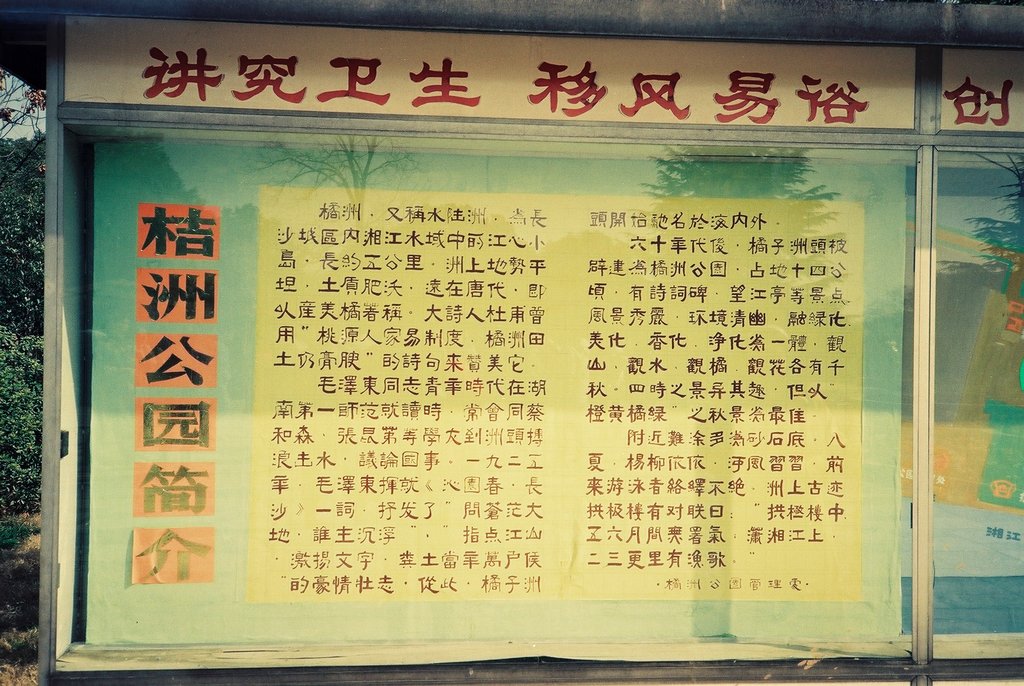 讲究卫生 移风易裕 创
桔洲公园简介
橘洲，又稱水陸洲，為長
沙城區内湘江水域中的江心小
島，長約五公里，洲上地勢平
坦，土质肥沃，遠在唐代，即
以産美橘著稱。大詩人杜甫曾
用"桃源人家易制度，橘洲田
土仍膏腴"的詩句來贊美它。
毛澤東同志青年時代在湖
南第一師范就讀時，常會同蔡
和森、張昆弟等學友到洲頭搏
浪击水，議論國事。一九二五
年，毛澤東揮就《沁園春·長
沙》一詞，抒发了"問蒼茫大
地，誰主沉浮""指点江山
，激揚文字，粪土當年萬户侯
"的豪情壮志，從此，橘子洲
頭開始馳名於海内外。
六十年代後，橘子洲頭被
辟建為橘洲公園，占地十四公
頃，有詩詞碑、望江亭等景点
風景秀麗，环境清幽，融緑化
美化、香化、净化為一體，觀
山、觀水、觀橘、觀花各有千
秋。四時之景异其趣，但以"
橙黄橘緑"之秋景為最佳。
附近難涂多為砂石底，八
夏，楊柳依依，河風習習，前
來游泳者絡繹不绝，洲上古迹
拱极樓有对联曰："拱極樓中
五六月間寒暑氣，瀟湘江上
二三更里有漁歌。
·橘洲公園管理處·
湘江